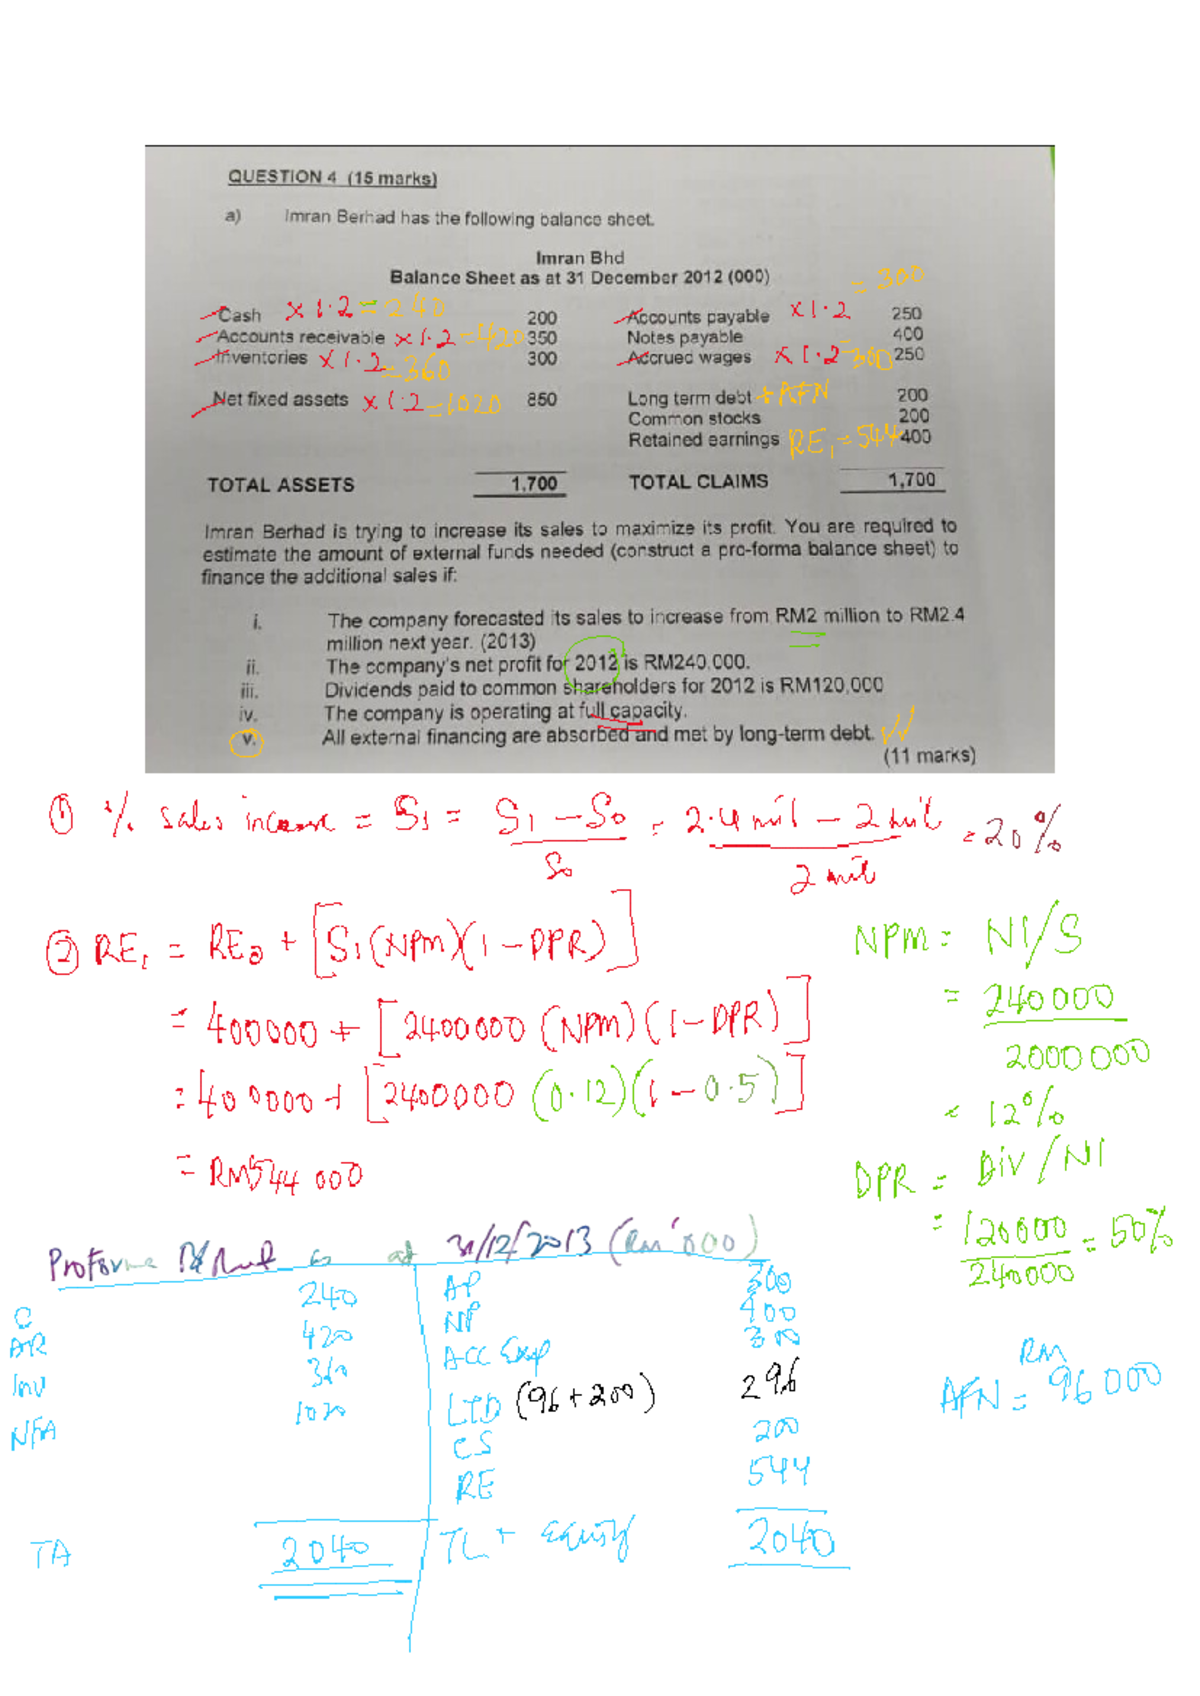 QUESTION 4 (15 marks)
a) Imran Berhad has the following balance sheet.
Imran Bhd
Balance Sheet as at 31 December 2012 (000)
= 300
Cash × 1.2 = 240 200 Accounts payable × 1.2 250
Accounts receivable × 1.2 = 420 350 Notes payable 400
Inventories × 1.2 = 360 300 Accrued wages × 1.2 = 300 250
Net fixed assets × 1.2 = 1020 850 Long term debt + AFN 200
Common stocks 200
Retained earnings RE1 = 544 400
TOTAL ASSETS 1,700 TOTAL CLAIMS 1,700
Imran Berhad is trying to increase its sales to maximize its profit. You are required to
estimate the amount of external funds needed (construct a pro-forma balance sheet) to
finance the additional sales if:
i. The company forecasted its sales to increase from RM2 million to RM2.4
million next year. (2013)
ii. The company's net profit for 2012 is RM240,000.
iii. Dividends paid to common shareholders for 2012 is RM120,000
iv. The company is operating at full capacity.
v. All external financing are absorbed and met by long-term debt.
(11 marks)
① % sales increase = S1 = S1 - S0 / S0 = 2.4 mil - 2 mil / 2 mil = 20%
② RE1 = RE0 + [S1(NPM)(1 - DPR)]
= 400000 + [2400000 (NPM)(1 - DPR)]
= 400000 + [2400000 (0.12)(1 - 0.5)]
= RM544 000
NPM = NI/S
= 240000 / 2000000
= 12%
DPR = Div / NI
= 120000 / 240000 = 50%
Proforma as at 31/12/2013 (RM'000)
C 240 AP 300
AR 420 NP 400
Inv 360 Acc Exp 300
NFA 1020 LTD (96 + 200) 296
CS 200
RE 544
TA 2040 TL + Equity 2040
AFN = RM 96000